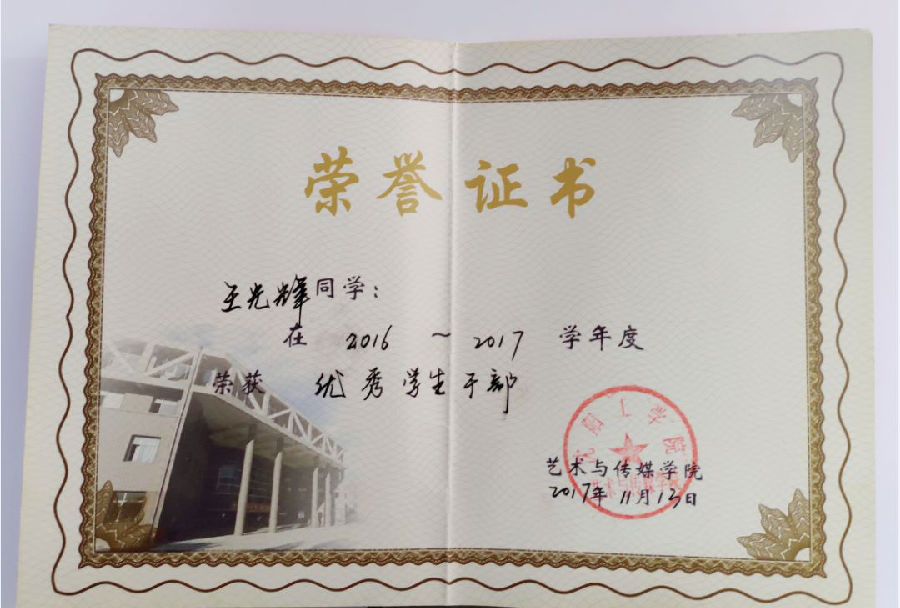 荣誉证书
王光辉同学：
在 2016 ~ 2017 学年度
荣获 优秀学生干部
艺术与传媒学院
2017年11月13日